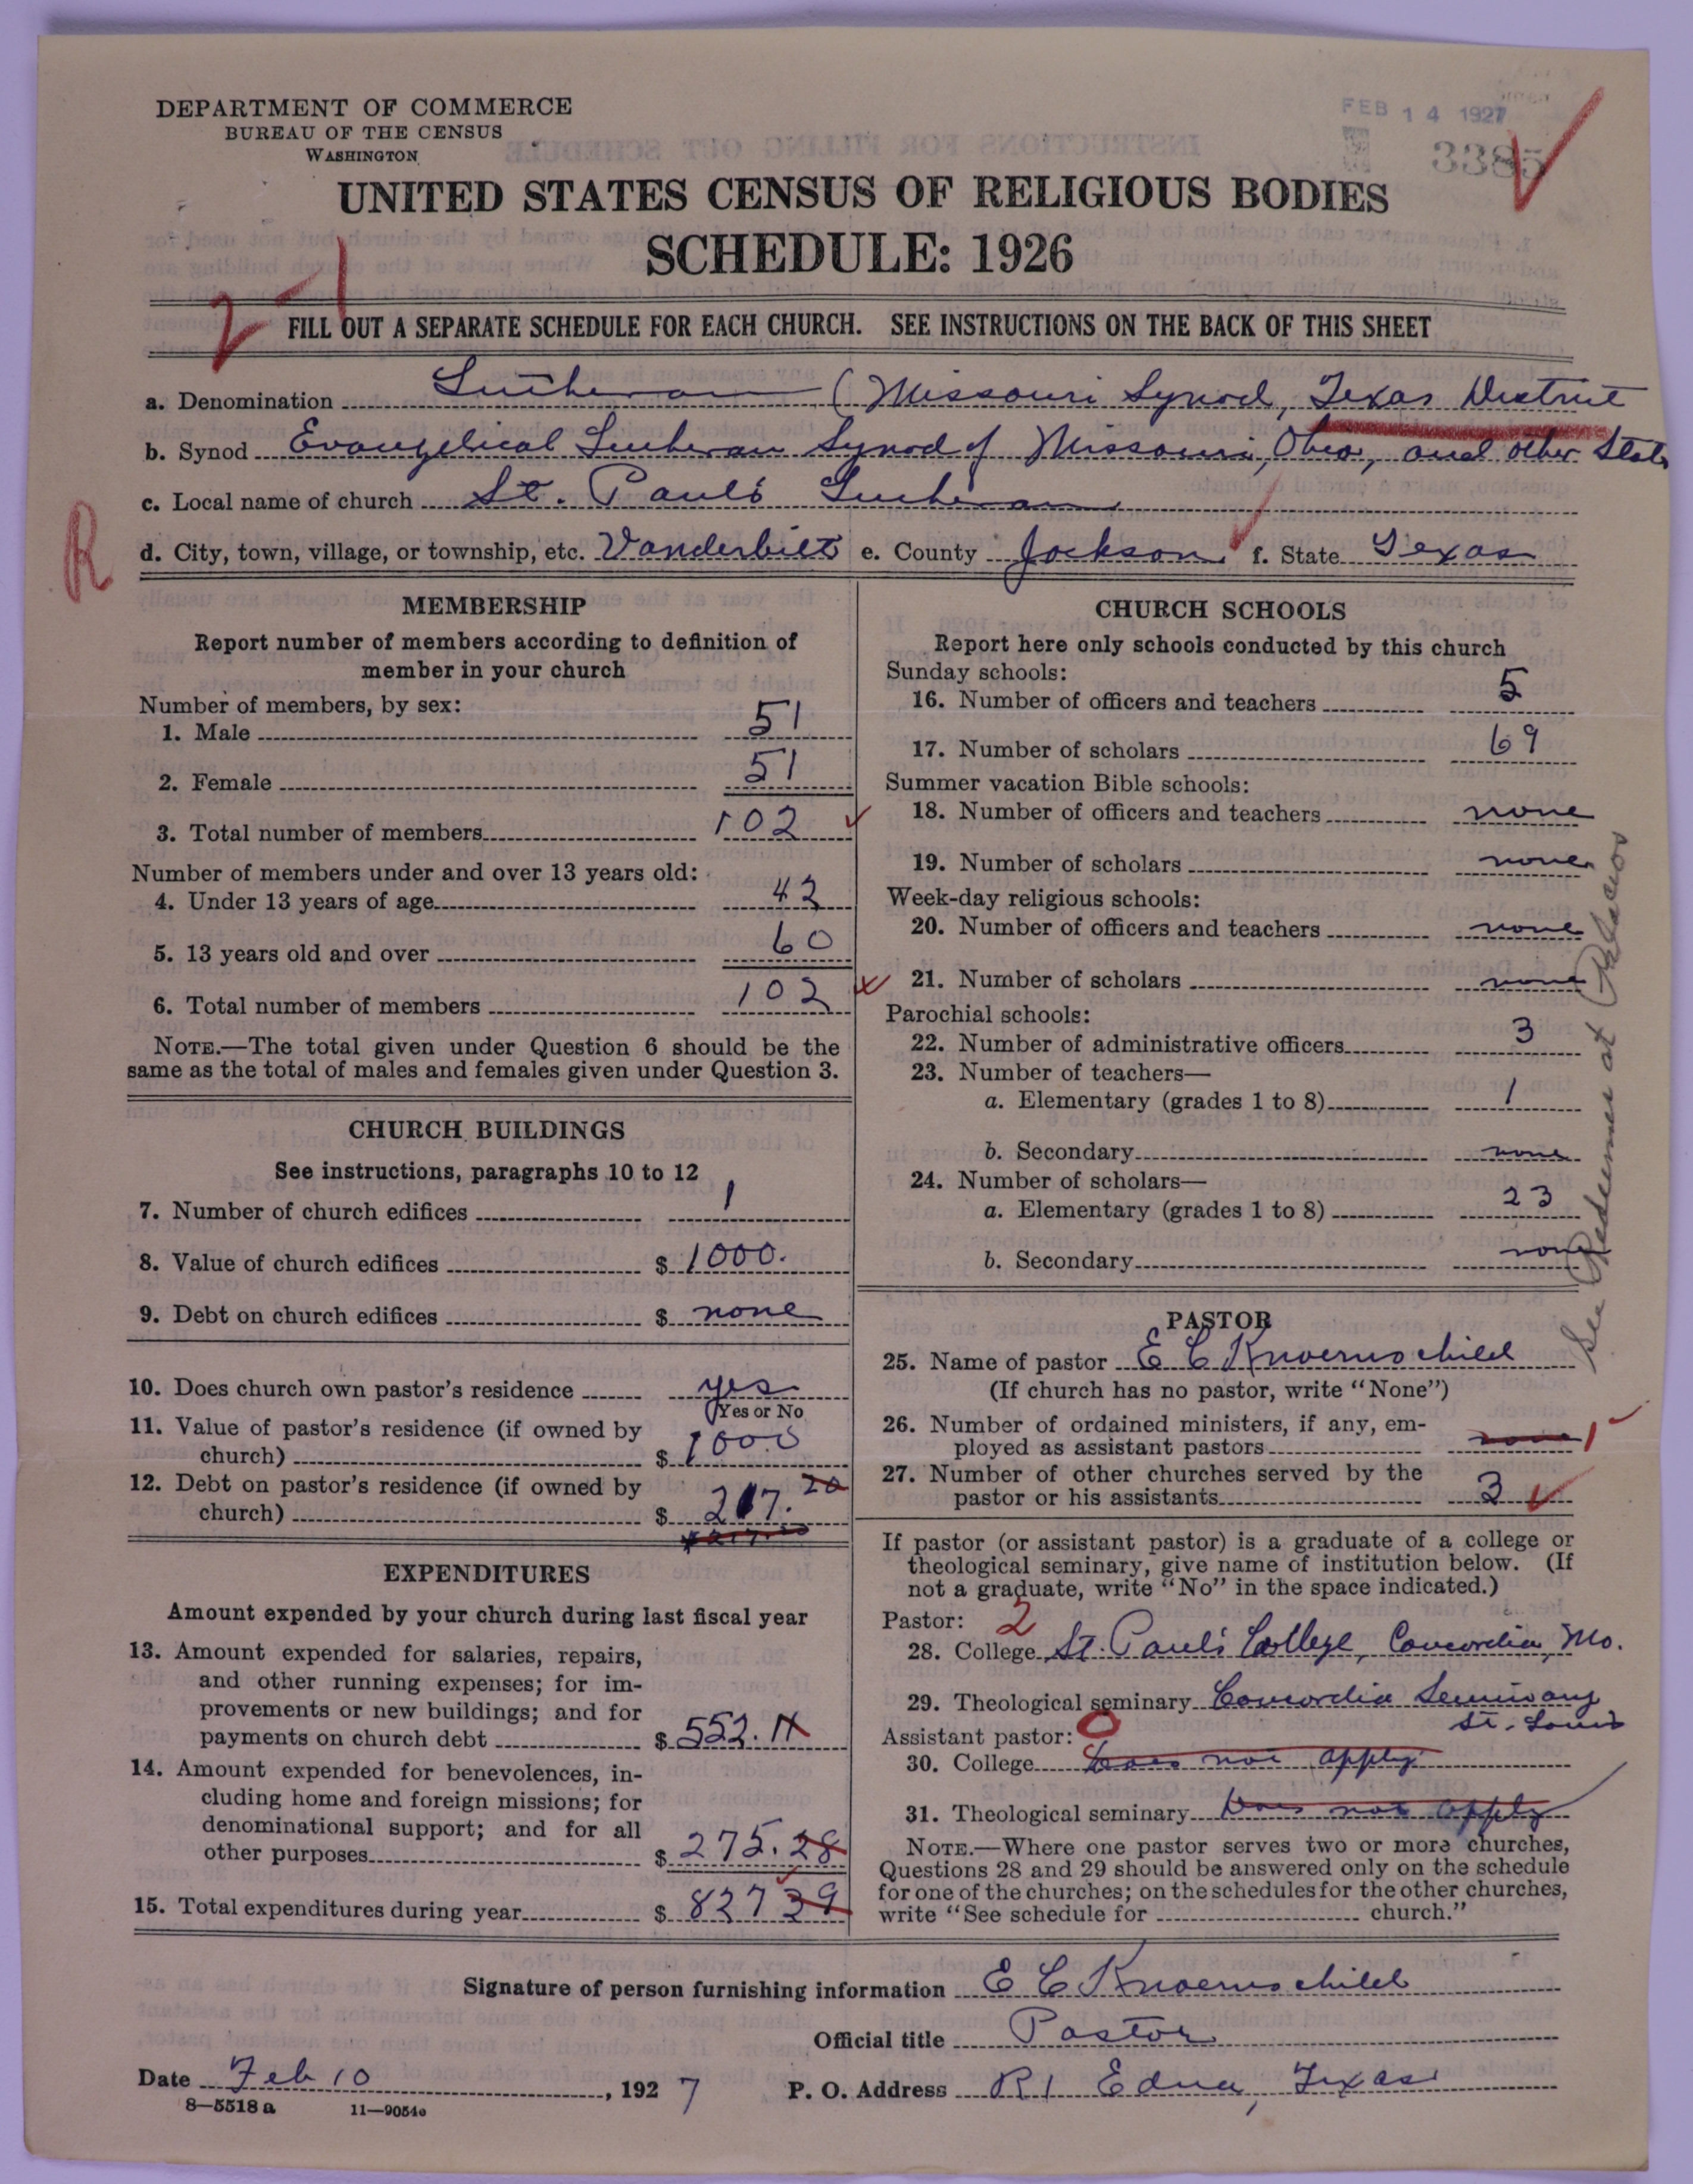 DEPARTMENT OF COMMERCE
BUREAU OF THE CENSUS
WASHINGTON
FEB 14 1927
3385
UNITED STATES CENSUS OF RELIGIOUS BODIES
SCHEDULE: 1926
2-1
FILL OUT A SEPARATE SCHEDULE FOR EACH CHURCH. SEE INSTRUCTIONS ON THE BACK OF THIS SHEET
a. Denomination Lutheran (Missouri Synod, Texas District
b. Synod Evangelical Lutheran Synod of Missouri, Ohio, and other States
c. Local name of church St. Paul's Lutheran
R
d. City, town, village, or township, etc. Vanderbilt e. County Jackson f. State Texas
MEMBERSHIP
Report number of members according to definition of
member in your church
Number of members, by sex:
1. Male 51
2. Female 51
3. Total number of members 102
Number of members under and over 13 years old:
4. Under 13 years of age 42
5. 13 years old and over 60
6. Total number of members 102
NOTE.—The total given under Question 6 should be the
same as the total of males and females given under Question 3.
CHURCH BUILDINGS
See instructions, paragraphs 10 to 12
7. Number of church edifices 1
8. Value of church edifices $ 1000.
9. Debt on church edifices $ none
10. Does church own pastor's residence yes
(Yes or No
11. Value of pastor's residence (if owned by
church) $ 1000
12. Debt on pastor's residence (if owned by
church) $ 217.20
EXPENDITURES
Amount expended by your church during last fiscal year
13. Amount expended for salaries, repairs,
and other running expenses; for im-
provements or new buildings; and for
payments on church debt $ 552.11
14. Amount expended for benevolences, in-
cluding home and foreign missions; for
denominational support; and for all
other purposes $ 275.28
15. Total expenditures during year $ 827 39
CHURCH SCHOOLS
Report here only schools conducted by this church
Sunday schools:
16. Number of officers and teachers 5
17. Number of scholars 69
Summer vacation Bible schools:
18. Number of officers and teachers none
19. Number of scholars none
Week-day religious schools:
20. Number of officers and teachers none
21. Number of scholars none
Parochial schools:
22. Number of administrative officers 3
23. Number of teachers—
a. Elementary (grades 1 to 8) 1
b. Secondary none
24. Number of scholars—
a. Elementary (grades 1 to 8) 23
b. Secondary none
See Redeemer at Palacios
PASTOR
25. Name of pastor E C Knoernschild
(If church has no pastor, write "None")
26. Number of ordained ministers, if any, em-
ployed as assistant pastors none 1
27. Number of other churches served by the
pastor or his assistants 3
If pastor (or assistant pastor) is a graduate of a college or
theological seminary, give name of institution below. (If
not a graduate, write "No" in the space indicated.)
Pastor: 2
28. College St. Paul's College, Concordia, Mo.
29. Theological seminary Concordia Seminary
St. Louis
Assistant pastor: 0
30. College Does not apply
31. Theological seminary Does not apply
NOTE.—Where one pastor serves two or more churches,
Questions 28 and 29 should be answered only on the schedule
for one of the churches; on the schedules for the other churches,
write "See schedule for church."
Signature of person furnishing information E C Knoernschild
Official title Pastor
Date Feb 10, 1927 P. O. Address R 1 Edna, Texas
8—5518 a 11—9054e